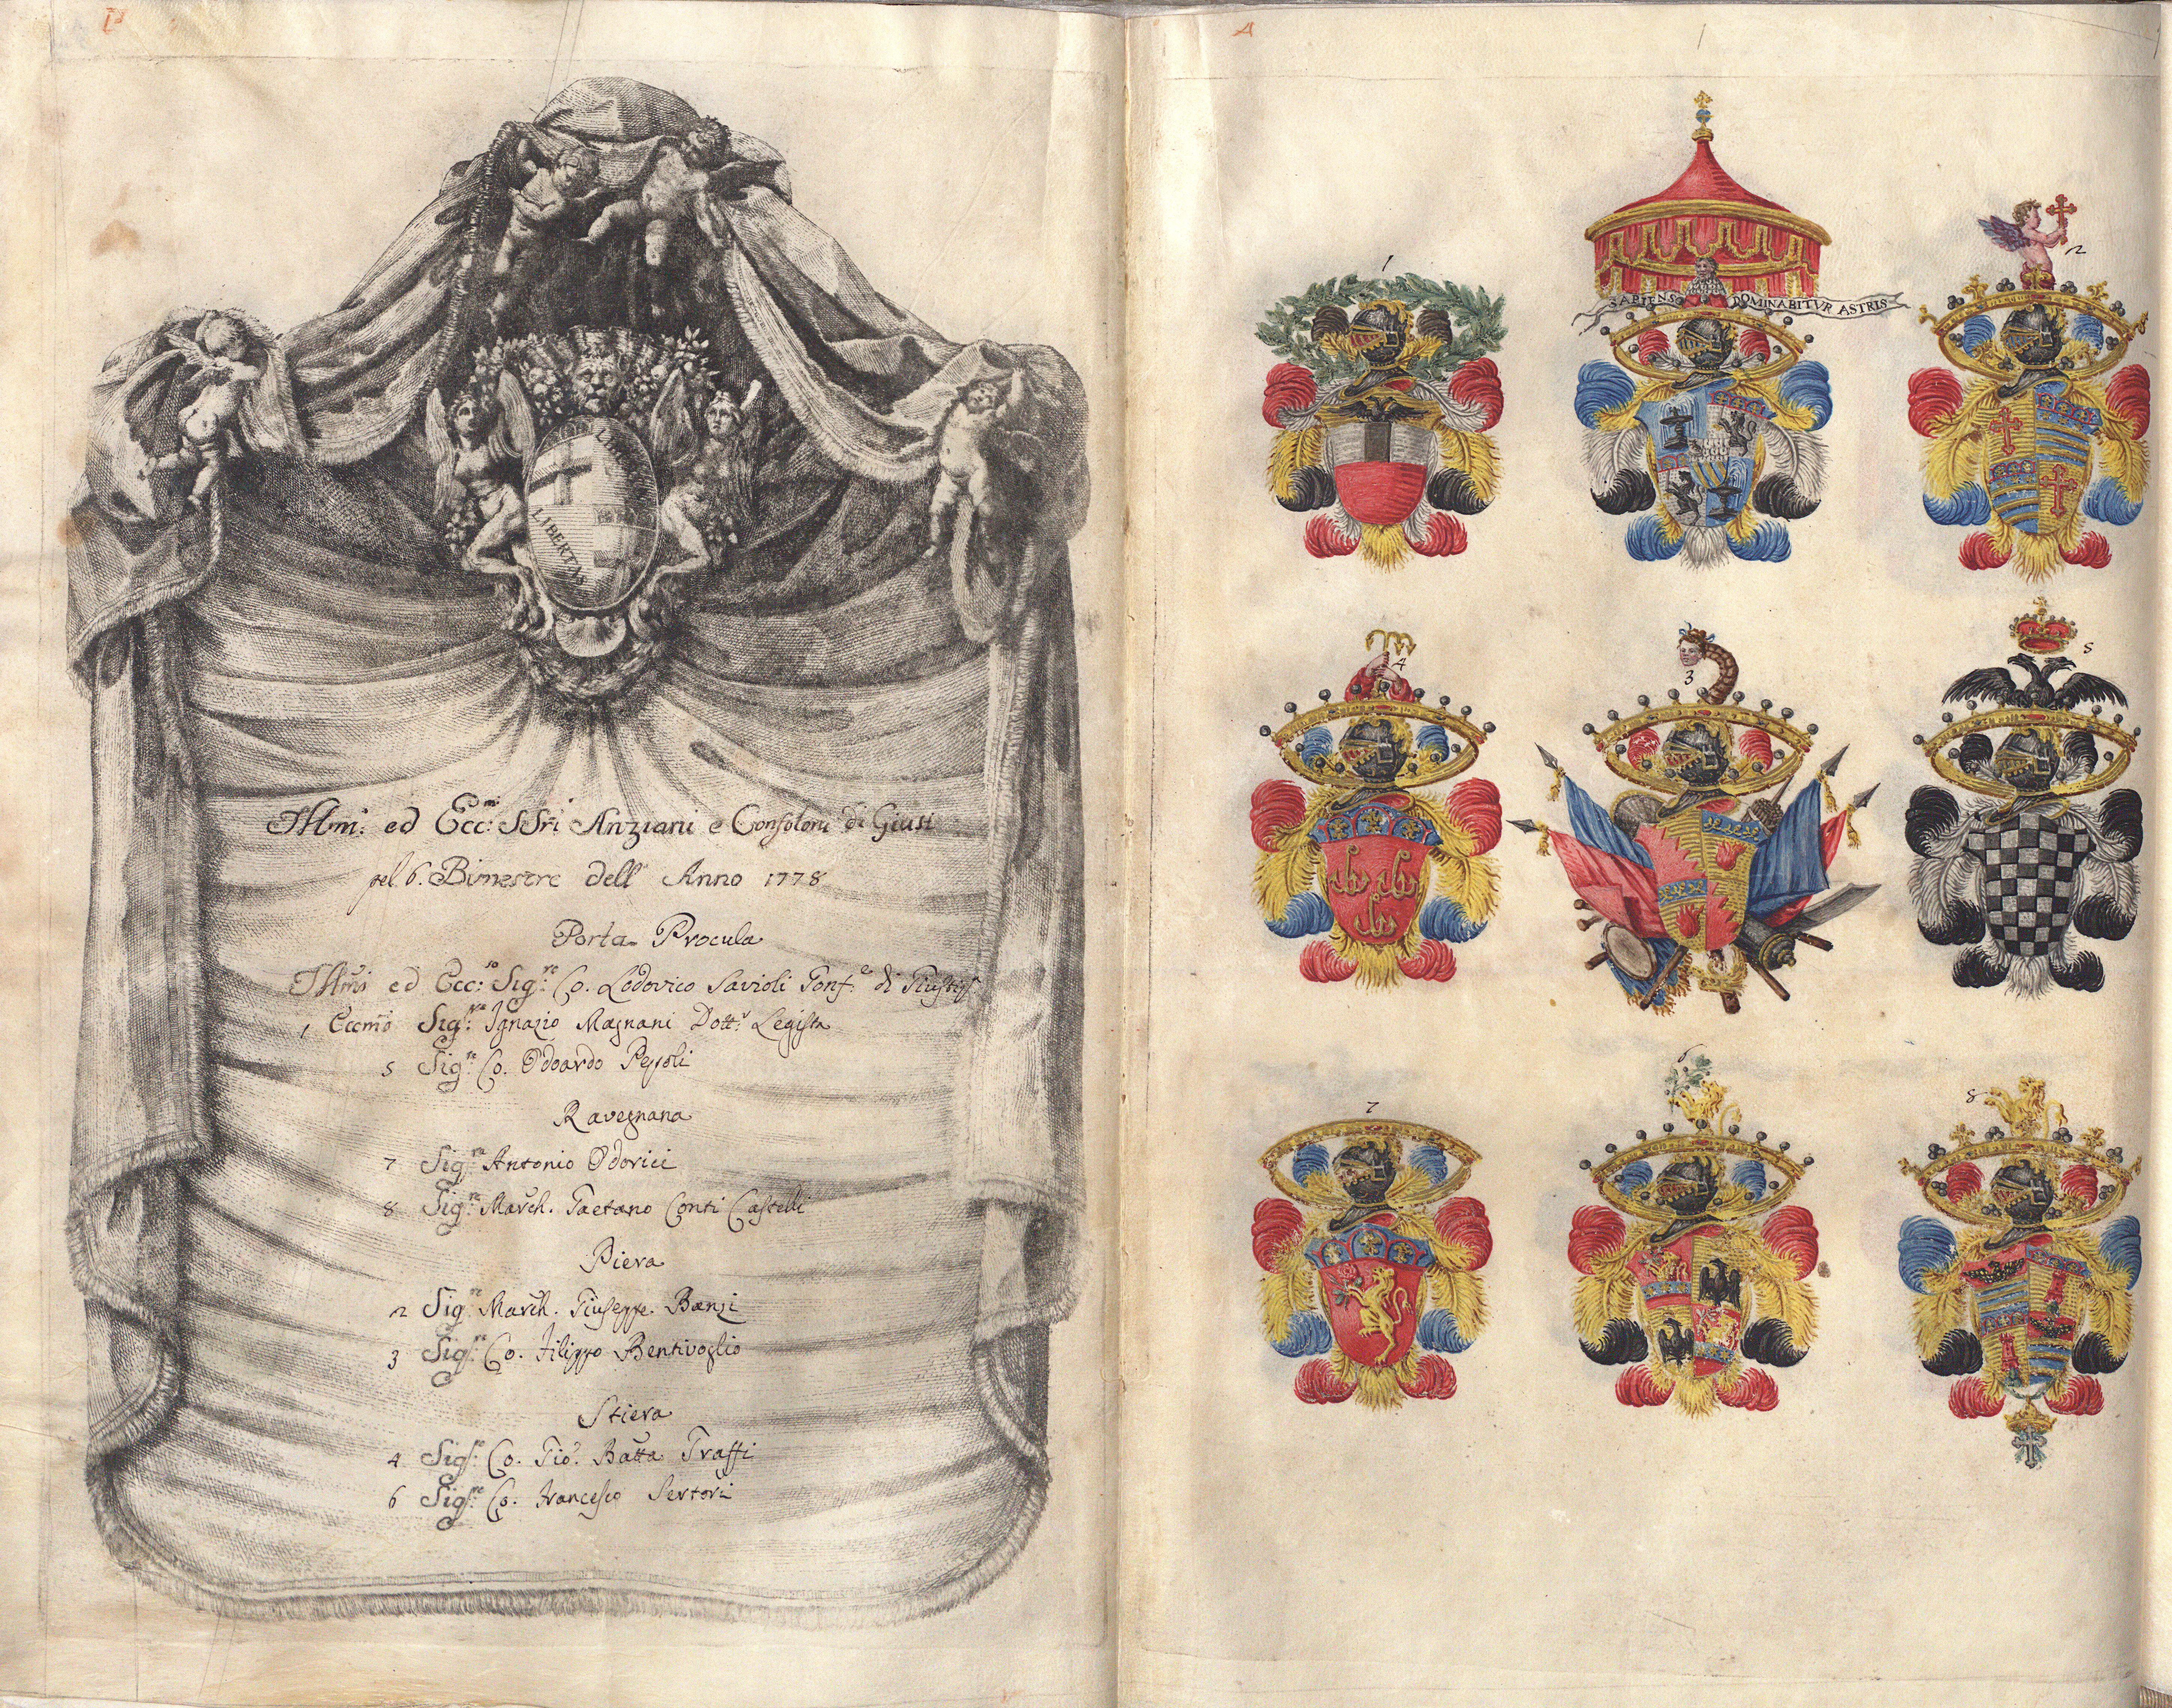 P
LIBERTAS
Illmi: ed Eccmi: SSri Anziani e Confaloni di Giusi
pel 6. Bimestre dell' Anno 1778
Porta Procula
Illmi ed Ecc:so Sig:re Co. Lodovico Savioli Gonf:e di Giustiza
1 Eccmo Sig:re Ignazio Magnani Dott:r Legista
5 Sig:re Co. Odoardo Pepoli
Ravegnana
7 Sig:re Antonio Odorici
8 Sig:re March. Gaetano Conti Castelli
Piera
2 Sig:re March. Giuseppe Banzi
3 Sig:re Co. Filippo Bentivoglio
Stiera
4 Sig:re Co. Gio: Batta Graffi
6 Sig:re Co. Francesco Sertori
A
1
1
SAPIENS DOMINABITVR ASTRIS
2
4
3
5
7
6
8